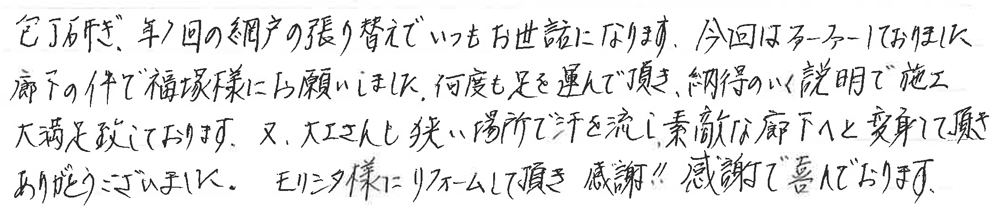 包丁研ぎ、年1回の網戸の張り替えでいつもお世話になります。今回はふーふーしておりました
廊下の件で福塚様にお願いしました。何度も足を運んで頂き、納得のいく説明で施工
大満足致しております。又、大工さんも狭い場所で汗を流し、素敵な廊下へと変身して頂き
ありがとうございました。 モリシタ様にリフォームして頂き 感謝!! 感謝で喜んでおります。